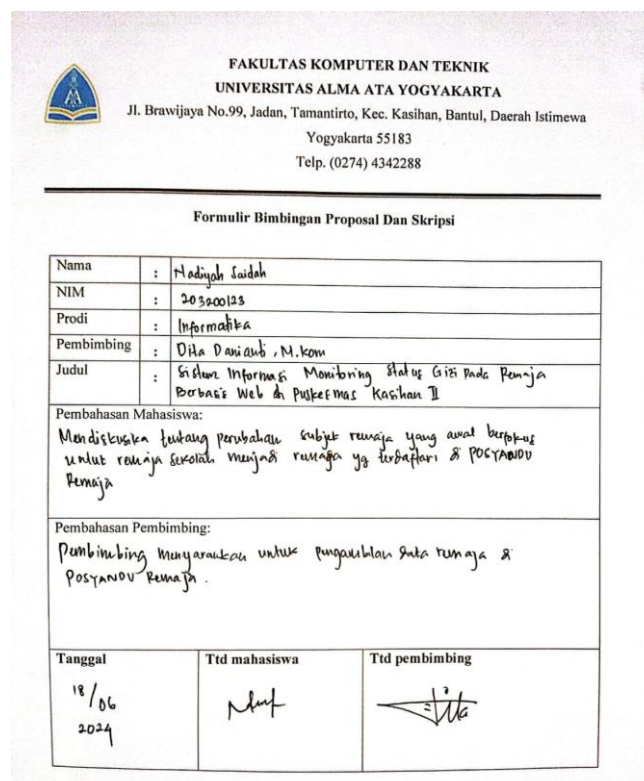 FAKULTAS KOMPUTER DAN TEKNIK
UNIVERSITAS ALMA ATA YOGYAKARTA
Jl. Brawijaya No.99, Jadan, Tamantirto, Kec. Kasihan, Bantul, Daerah Istimewa
Yogyakarta 55183
Telp. (0274) 4342288
Formulir Bimbingan Proposal Dan Skripsi
Nama : Nadiyah Saidah
NIM : 203200123
Prodi : Informatika
Pembimbing : Dita Danianti, M.kom
Judul : Sistem Informasi Monitoring Status Gizi Pada Remaja
Berbasis Web di Puskesmas Kasihan II
Pembahasan Mahasiswa:
Mendiskusika tentang perubahan subjek remaja yang awal berfokus
untuk remaja sekolah menjadi remaja yg terdaftar di POSYANDU
Remaja
Pembahasan Pembimbing:
Pembimbing menyarankan untuk pengambilan data remaja di
POSYANDU Remaja.
Tanggal Ttd mahasiswa Ttd pembimbing
18/06
2024